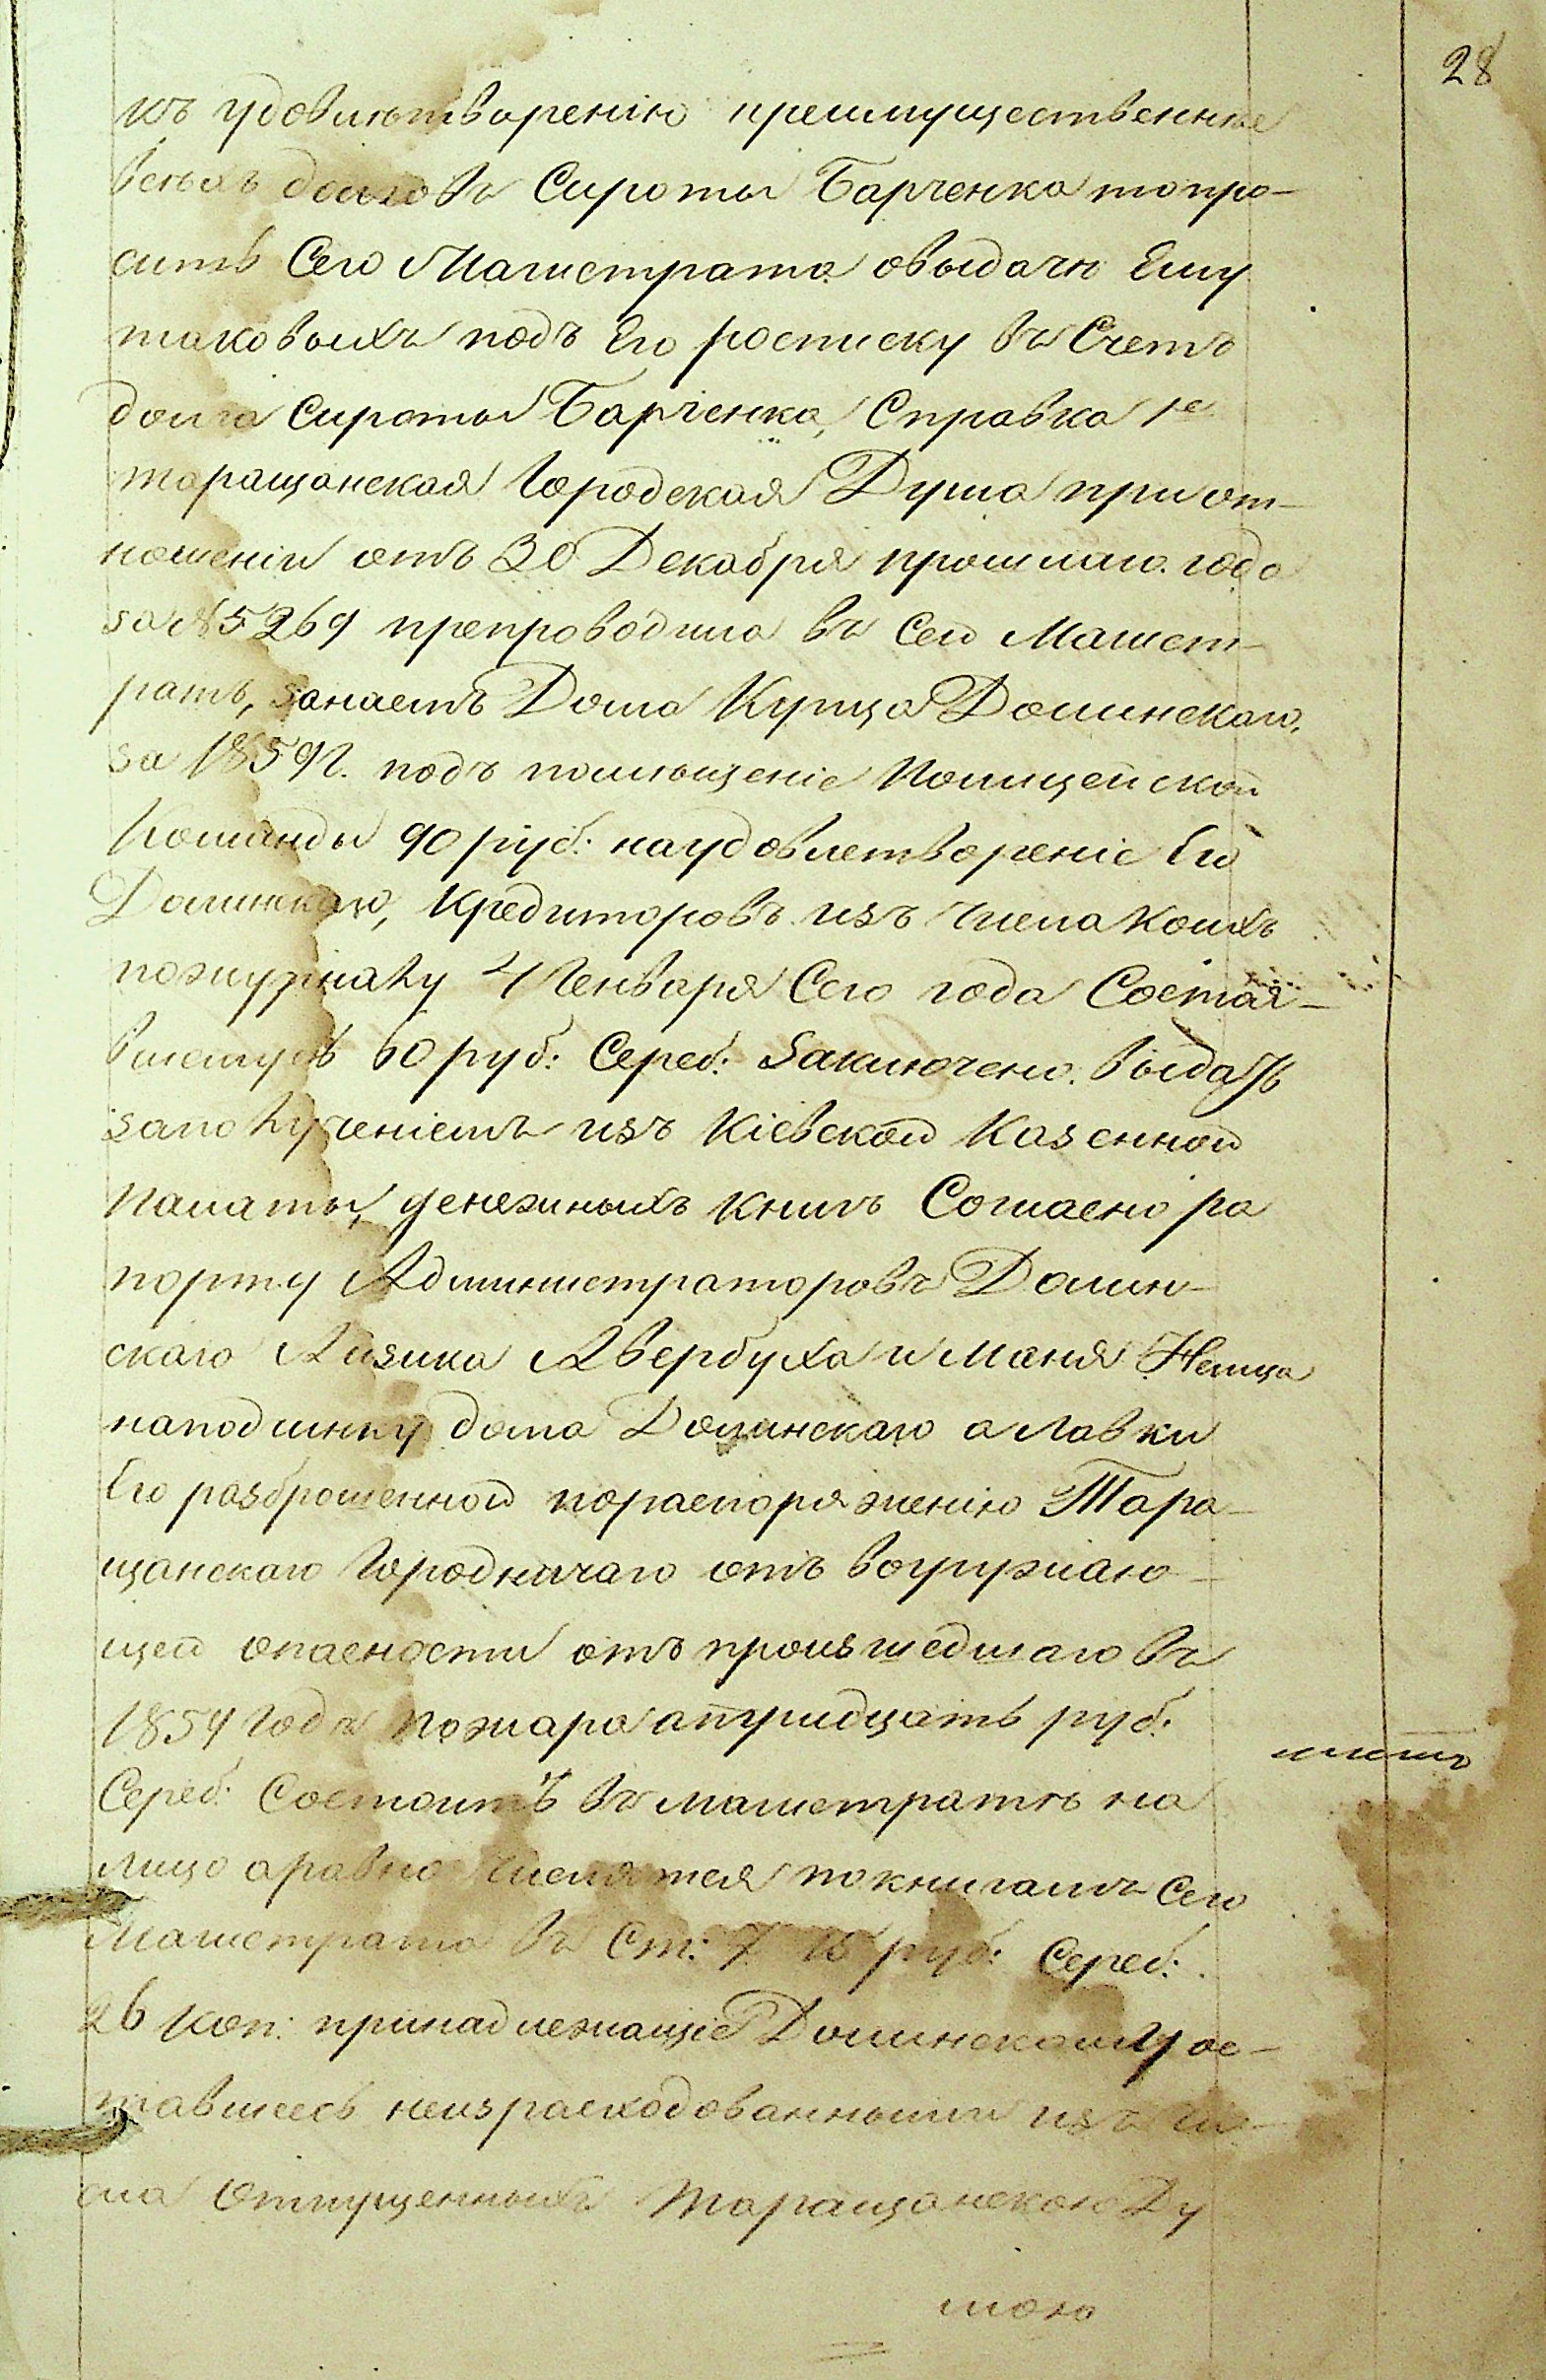 28
къ удовлѣтворенію преимущественнѣе
всѣхъ долговъ Сироты Барченка то про-
ситъ Сего Магистрата о выдачѣ Ему
таковыхъ подъ Его росписку въ Счетъ
долга Сироты Барченка, Справка 1е
таращанская Городская Дума при от-
ношеніи отъ 30 Декабря прошлаго года
за № 5269 препроводила въ Сей Магист-
ратъ, занаемъ Дома Купца Долинскаго,
за 1859 г. подъ помѣщеніе Полицейской
Команды 90 руб: на удовлетвореніе Его
Долинскаго, Кредиторовъ изъ числа коихъ
по журналу 4 Генваря Сего года Состояв-
шемусъ 60 руб: Сереб: Заключено выдать
за полученіемъ изъ Кіевской Казенной
Палаты, денежныхъ книгъ Согласно ра
порту Администраторовъ Долин-
скаго Айзика Авербуха и Маня Немца
на починку дома Долинскаго а лавки
Его разброшенной по распоряженію Тара-
щанскаго Городничаго отъ вогружаю-
щей опасности отъ произшедшаго въ
1854 годѣ пожара а тридцать руб:
Сереб: Состоитъ въ магистратѣ на
лицо а равно числятся по книгамъ Сего
Магистрата въ Ст: 7 15 руб: Сереб:
26 коп: принадлежащіе Долинскому ос-
тавшеесь неизрасходованными изъ чи-
сла отпущенныхъ Таращанскою Ду
мою